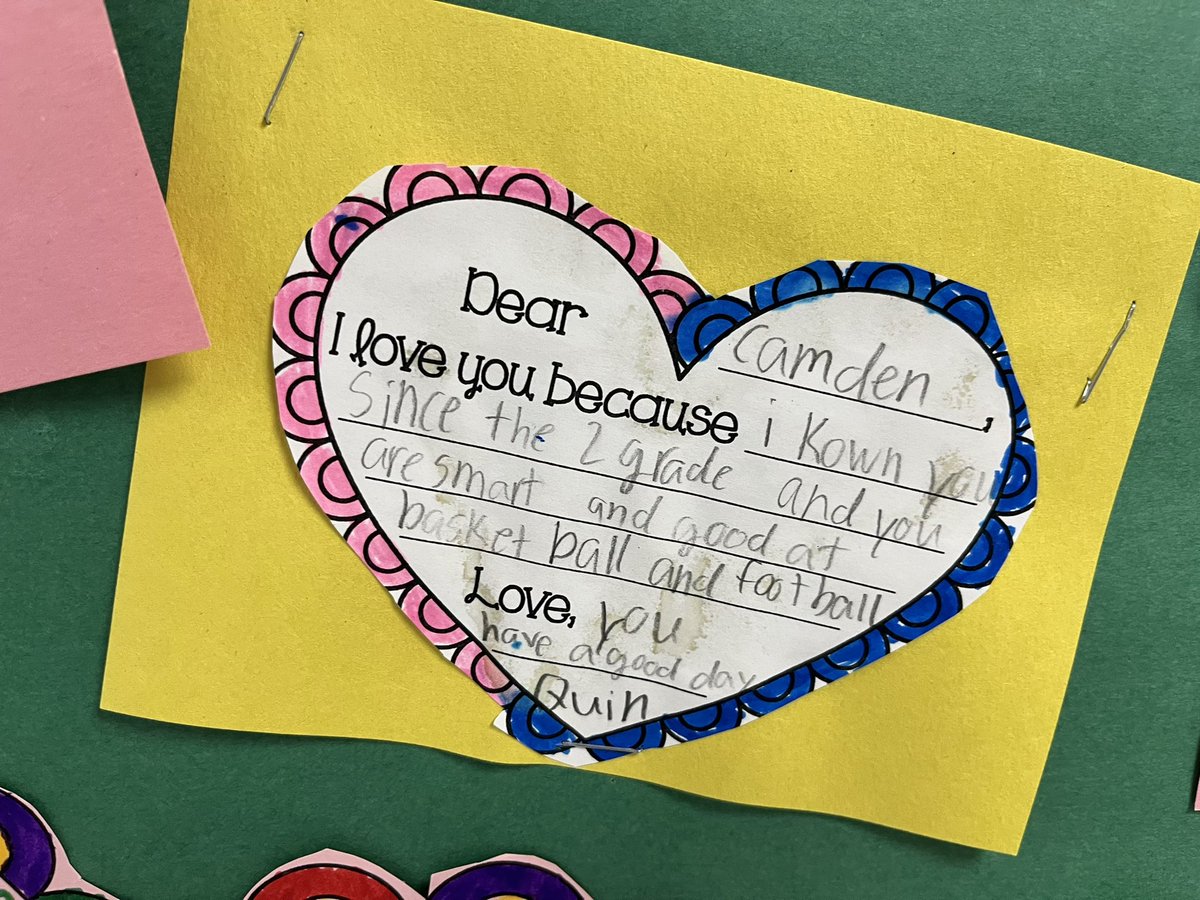 Dear Camden,
I love you because i Kown you
Since the 2 grade and you
are smart and good at
basket ball and football
Love, you
have a good day
Quin